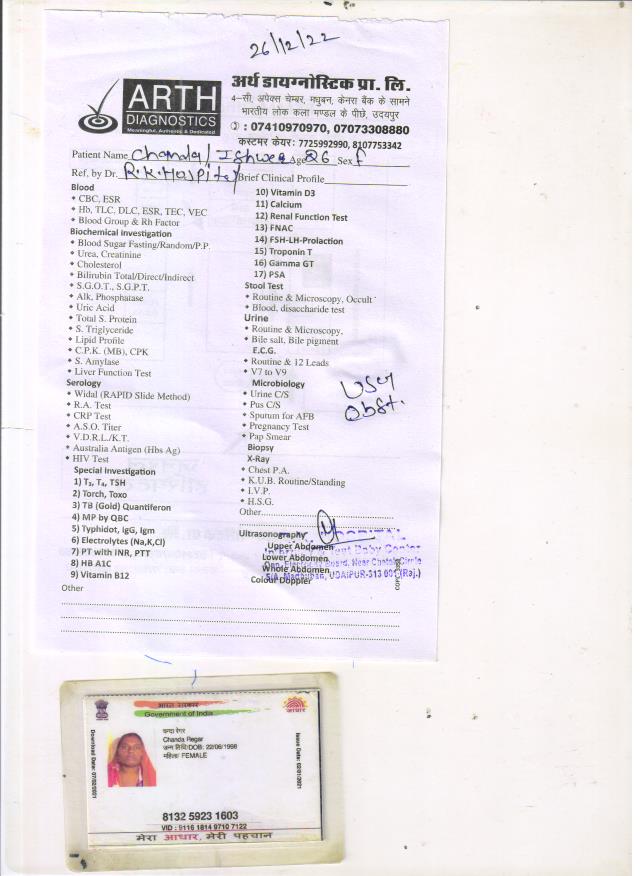 26/12/22
ARTH
DIAGNOSTICS
Meaningful, Authentic & Dedicated
अर्थ डायग्नोस्टिक प्रा. लि.
4-सी, अपेक्स चेम्बर, मधुबन, केनरा बैंक के सामने
भारतीय लोक कला मण्डल के पीछे, उदयपुर
: 07410970970, 07073308880
कस्टमर केयर: 7725992990, 8107753342
Patient Name Chanda / Ishwer Age 26 Sex F
Ref, by Dr. R.K. Hospital Brief Clinical Profile
Blood
CBC, ESR
Hb, TLC, DLC, ESR, TEC, VEC
Blood Group & Rh Factor
Biochemical Investigation
Blood Sugar Fasting/Random/P.P.
Urea, Creatinine
Cholesterol
Bilirubin Total/Direct/Indirect
S.G.O.T., S.G.P.T.
Alk, Phosphatase
Uric Acid
Total S. Protein
S. Triglyceride
Lipid Profile
C.P.K. (MB), CPK
S. Amylase
Liver Function Test
Serology
Widal (RAPID Slide Method)
R.A. Test
CRP Test
A.S.O. Titer
V.D.R.L./K.T.
Australia Antigen (Hbs Ag)
HIV Test
Special Investigation
1) T₃, T₄, TSH
2) Torch, Toxo
3) TB (Gold) Quantiferon
4) MP by QBC
5) Typhidot, IgG, Igm
6) Electrolytes (Na,K,Cl)
7) PT with INR, PTT
8) HB A1C
9) Vitamin B12
Other
10) Vitamin D3
11) Calcium
12) Renal Function Test
13) FNAC
14) FSH-LH-Prolaction
15) Troponin T
16) Gamma GT
17) PSA
Stool Test
Routine & Microscopy, Occult
Blood, disaccharide test
Urine
Routine & Microscopy,
Bile salt, Bile pigment
E.C.G.
Routine & 12 Leads
V7 to V9
Microbiology
Urine C/S
Pus C/S
Sputum for AFB
Pregnancy Test
Pap Smear
Biopsy
X-Ray
Chest P.A.
K.U.B. Routine/Standing
I.V.P.
H.S.G.
Other
Ultrasonography
Upper Abdomen
Lower Abdomen
Whole Abdomen
Colour Doppler
USG
Obst.
Board, Near Chetak Circle
Madhuban, UDAIPUR-313 001 (Raj.)
भारत सरकार
Government of India
आधार
Download Date: 07/02/2021
चन्दा रेगर
Chanda Regar
जन्म तिथि/DOB: 22/06/1998
महिला/ FEMALE
Issue Date: 02/01/2021
8132 5923 1603
VID : 9116 1814 9710 7122
मेरा आधार, मेरी पहचान